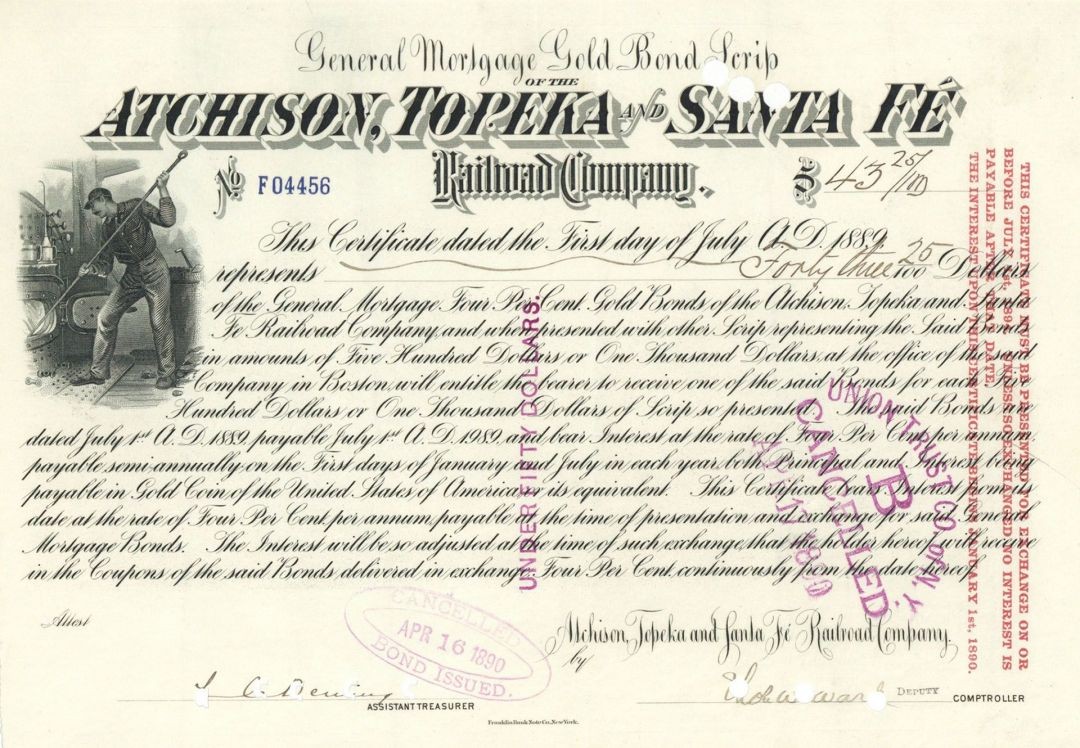 General Mortgage Gold Bond Scrip
OF THE
ATCHISON, TOPEKA AND SANTA FÉ
Railroad Company.
No F04456
$43 25/100
This Certificate, dated the First day of July A.D. 1889.
represents Forty three 25/100 Dollars
of the General Mortgage Four Per Cent. Gold Bonds of the Atchison, Topeka and Santa
Fe Railroad Company, and when presented with other Scrip representing the Said Bonds
in amounts of Five Hundred Dollars or One Thousand Dollars, at the office of the said
Company in Boston will entitle the bearer to receive one of the said Bonds for each Five
Hundred Dollars or One Thousand Dollars of Scrip so presented. The said Bonds are
dated July 1st A.D. 1889, payable July 1st A.D. 1989, and bear Interest at the rate of Four Per Cent. per annum,
payable semi-annually on the First days of January and July in each year, both Principal and Interest being
payable in Gold Coin of the United States of America or its equivalent. This Certificate bears Interest from its
date at the rate of Four Per Cent. per annum, payable at the time of presentation and exchange for said General
Mortgage Bonds. The Interest will be so adjusted at the time of such exchange, that the holder hereof will receive
in the Coupons of the said Bonds delivered in exchange, Four Per Cent. continuously from the date hereof.
Attest
Atchison, Topeka and Santa Fé Railroad Company.
by
ASSISTANT TREASURER
DEPUTY COMPTROLLER
Franklin Bank Note Co. New York.
THIS CERTIFICATE MUST BE PRESENTED FOR EXCHANGE ON OR
BEFORE JULY 1st, 1894, UNLESS SO EXCHANGED NO INTEREST IS
PAYABLE AFTER THAT DATE.
THE INTEREST UPON THIS CERTIFICATE BEGINS JANUARY 1st, 1890.
UNDER FIFTY DOLLARS.
UNION TRUST CO. OF N.Y.
B
CANCELLED
1890
CANCELLED
APR 16 1890
BOND ISSUED.